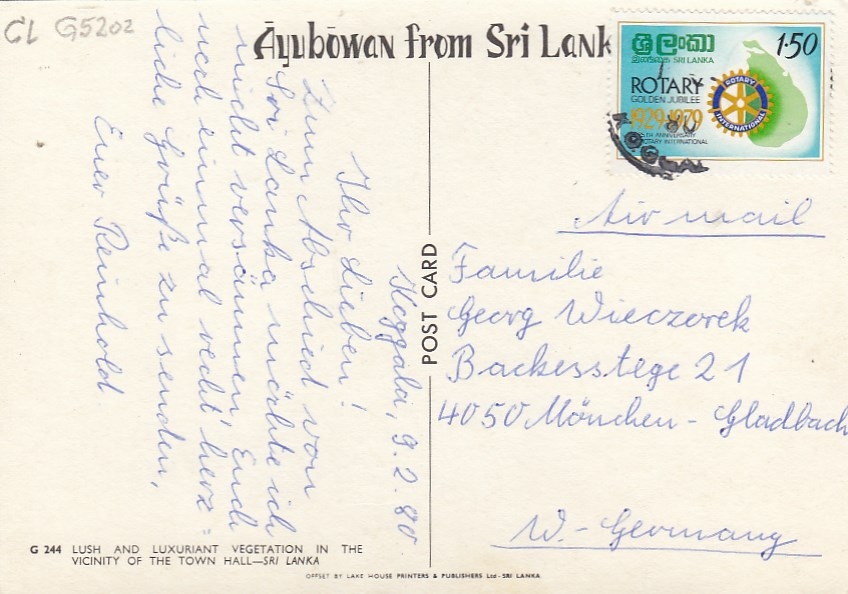 CL G5202
Āyubōwan from Sri Lank
ශ්‍රී ලංකා
இலங்கை SRI LANKA
1·50
ROTARY
GOLDEN JUBILEE
1929-1979
75TH ANNIVERSARY
ROTARY INTERNATIONAL
ROTARY
INTERNATIONAL
Air mail
Familie
Georg Wieczorek
Backesstege 21
4050 Mönchen-Gladbach
W.-Germany
POST CARD
Koggala, 9.2.80
Ihr Lieben!
Zum Abschied von
Sri Lanka möchte ich
nicht versäumen, Euch
noch einmal recht herz=
liche Grüße zu senden,
Euer Reinhold
G 244 LUSH AND LUXURIANT VEGETATION IN THE
VICINITY OF THE TOWN HALL—SRI LANKA
OFFSET BY LAKE HOUSE PRINTERS & PUBLISHERS Ltd - SRI LANKA